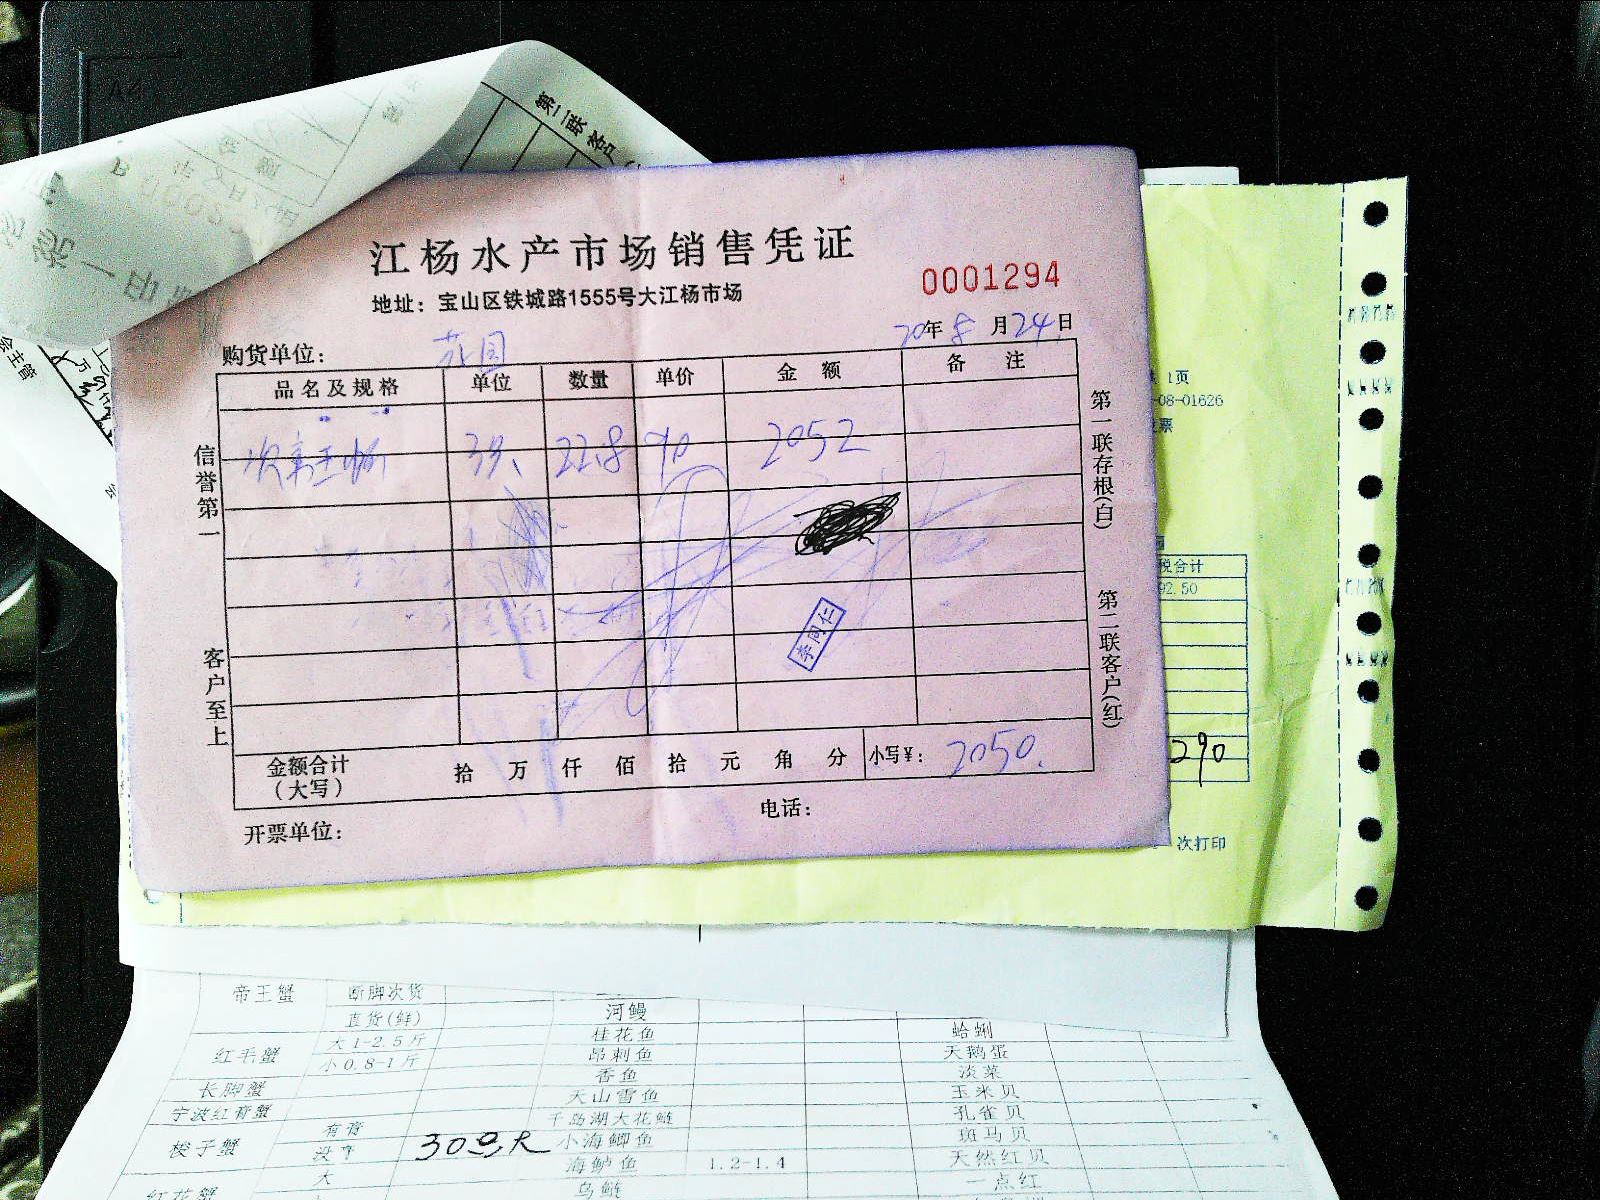 第二联客户
江杨水产市场销售凭证
0001294
地址：宝山区铁城路1555号大江杨市场
20年8月24日
购货单位：
品名及规格 单位 数量 单价 金额 备注
22.8 90 2052
李同仁
金额合计（大写） 拾万仟佰拾元角分 小写¥：2050.
开票单位： 电话：
信誉第一
客户至上
第一联存根(白)
第二联客户(红)
会主管
1页
-08-01626
税合计
92.50
290
次打印
帝王蟹 断脚次货
直货(鲜) 河鳗
红毛蟹 大1-2.5斤 桂花鱼 蛤蜊
小0.8-1斤 昂刺鱼 天鹅蛋
香鱼 淡菜
长脚蟹 天山雪鱼 玉米贝
宁波红膏蟹 千岛湖大花鲢 孔雀贝
梭子蟹 有膏 小海鲫鱼 斑马贝
海鲈鱼 1.2-1.4 天然红贝
红花蟹 大 乌鲢 一点红